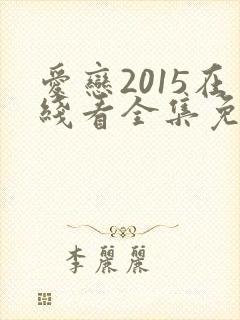 愛戀2015在
綫看全集免
李麗麗